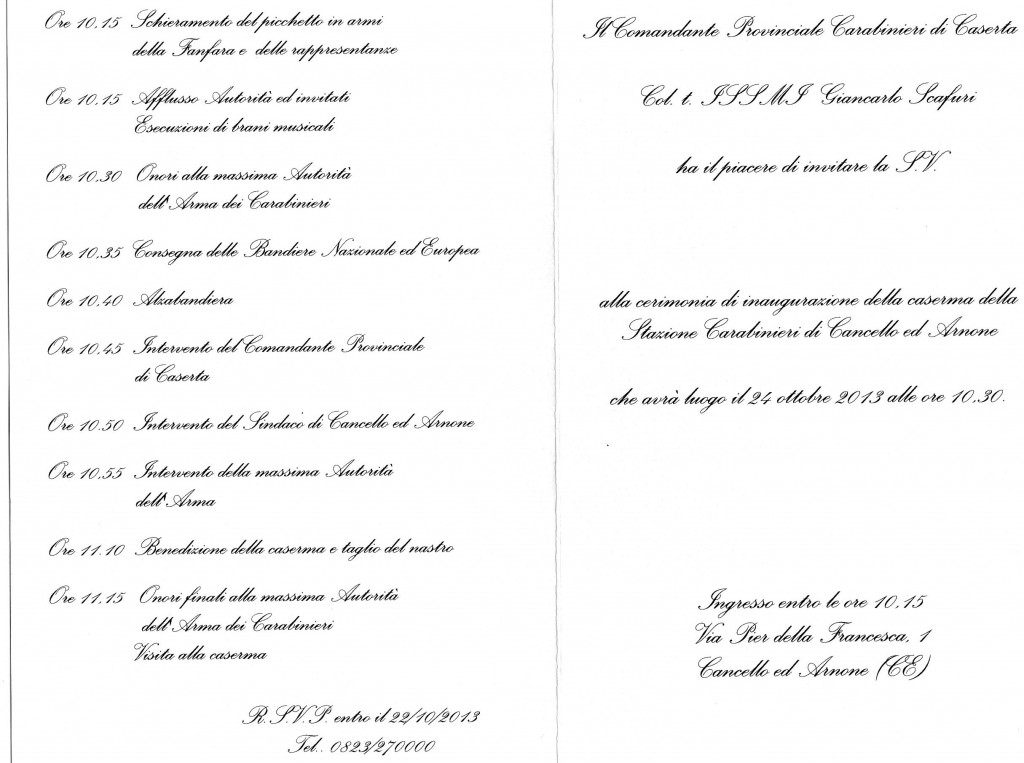 Ore 10,15 Schieramento del picchetto in armi
della Fanfara e delle rappresentanze
Ore 10,15 Afflusso Autorità ed invitati
Esecuzioni di brani musicali
Ore 10,30 Onori alla massima Autorità
dell'Arma dei Carabinieri
Ore 10,35 Consegna delle Bandiere Nazionale ed Europea
Ore 10,40 Alzabandiera
Ore 10,45 Intervento del Comandante Provinciale
di Caserta
Ore 10,50 Intervento del Sindaco di Cancello ed Arnone
Ore 10,55 Intervento della massima Autorità
dell'Arma
Ore 11,10 Benedizione della caserma e taglio del nastro
Ore 11,15 Onori finali alla massima Autorità
dell'Arma dei Carabinieri
Visita alla caserma
R.S.V.P. entro il 22/10/2013
Tel.. 0823/270000
Il Comandante Provinciale Carabinieri di Caserta
Col. t. ISSMI Giancarlo Scafuri
ha il piacere di invitare la S.V.
alla cerimonia di inaugurazione della caserma della
Stazione Carabinieri di Cancello ed Arnone
che avrà luogo il 24 ottobre 2013 alle ore 10,30.
Ingresso entro le ore 10,15
Via Pier della Francesca, 1
Cancello ed Arnone (CE)